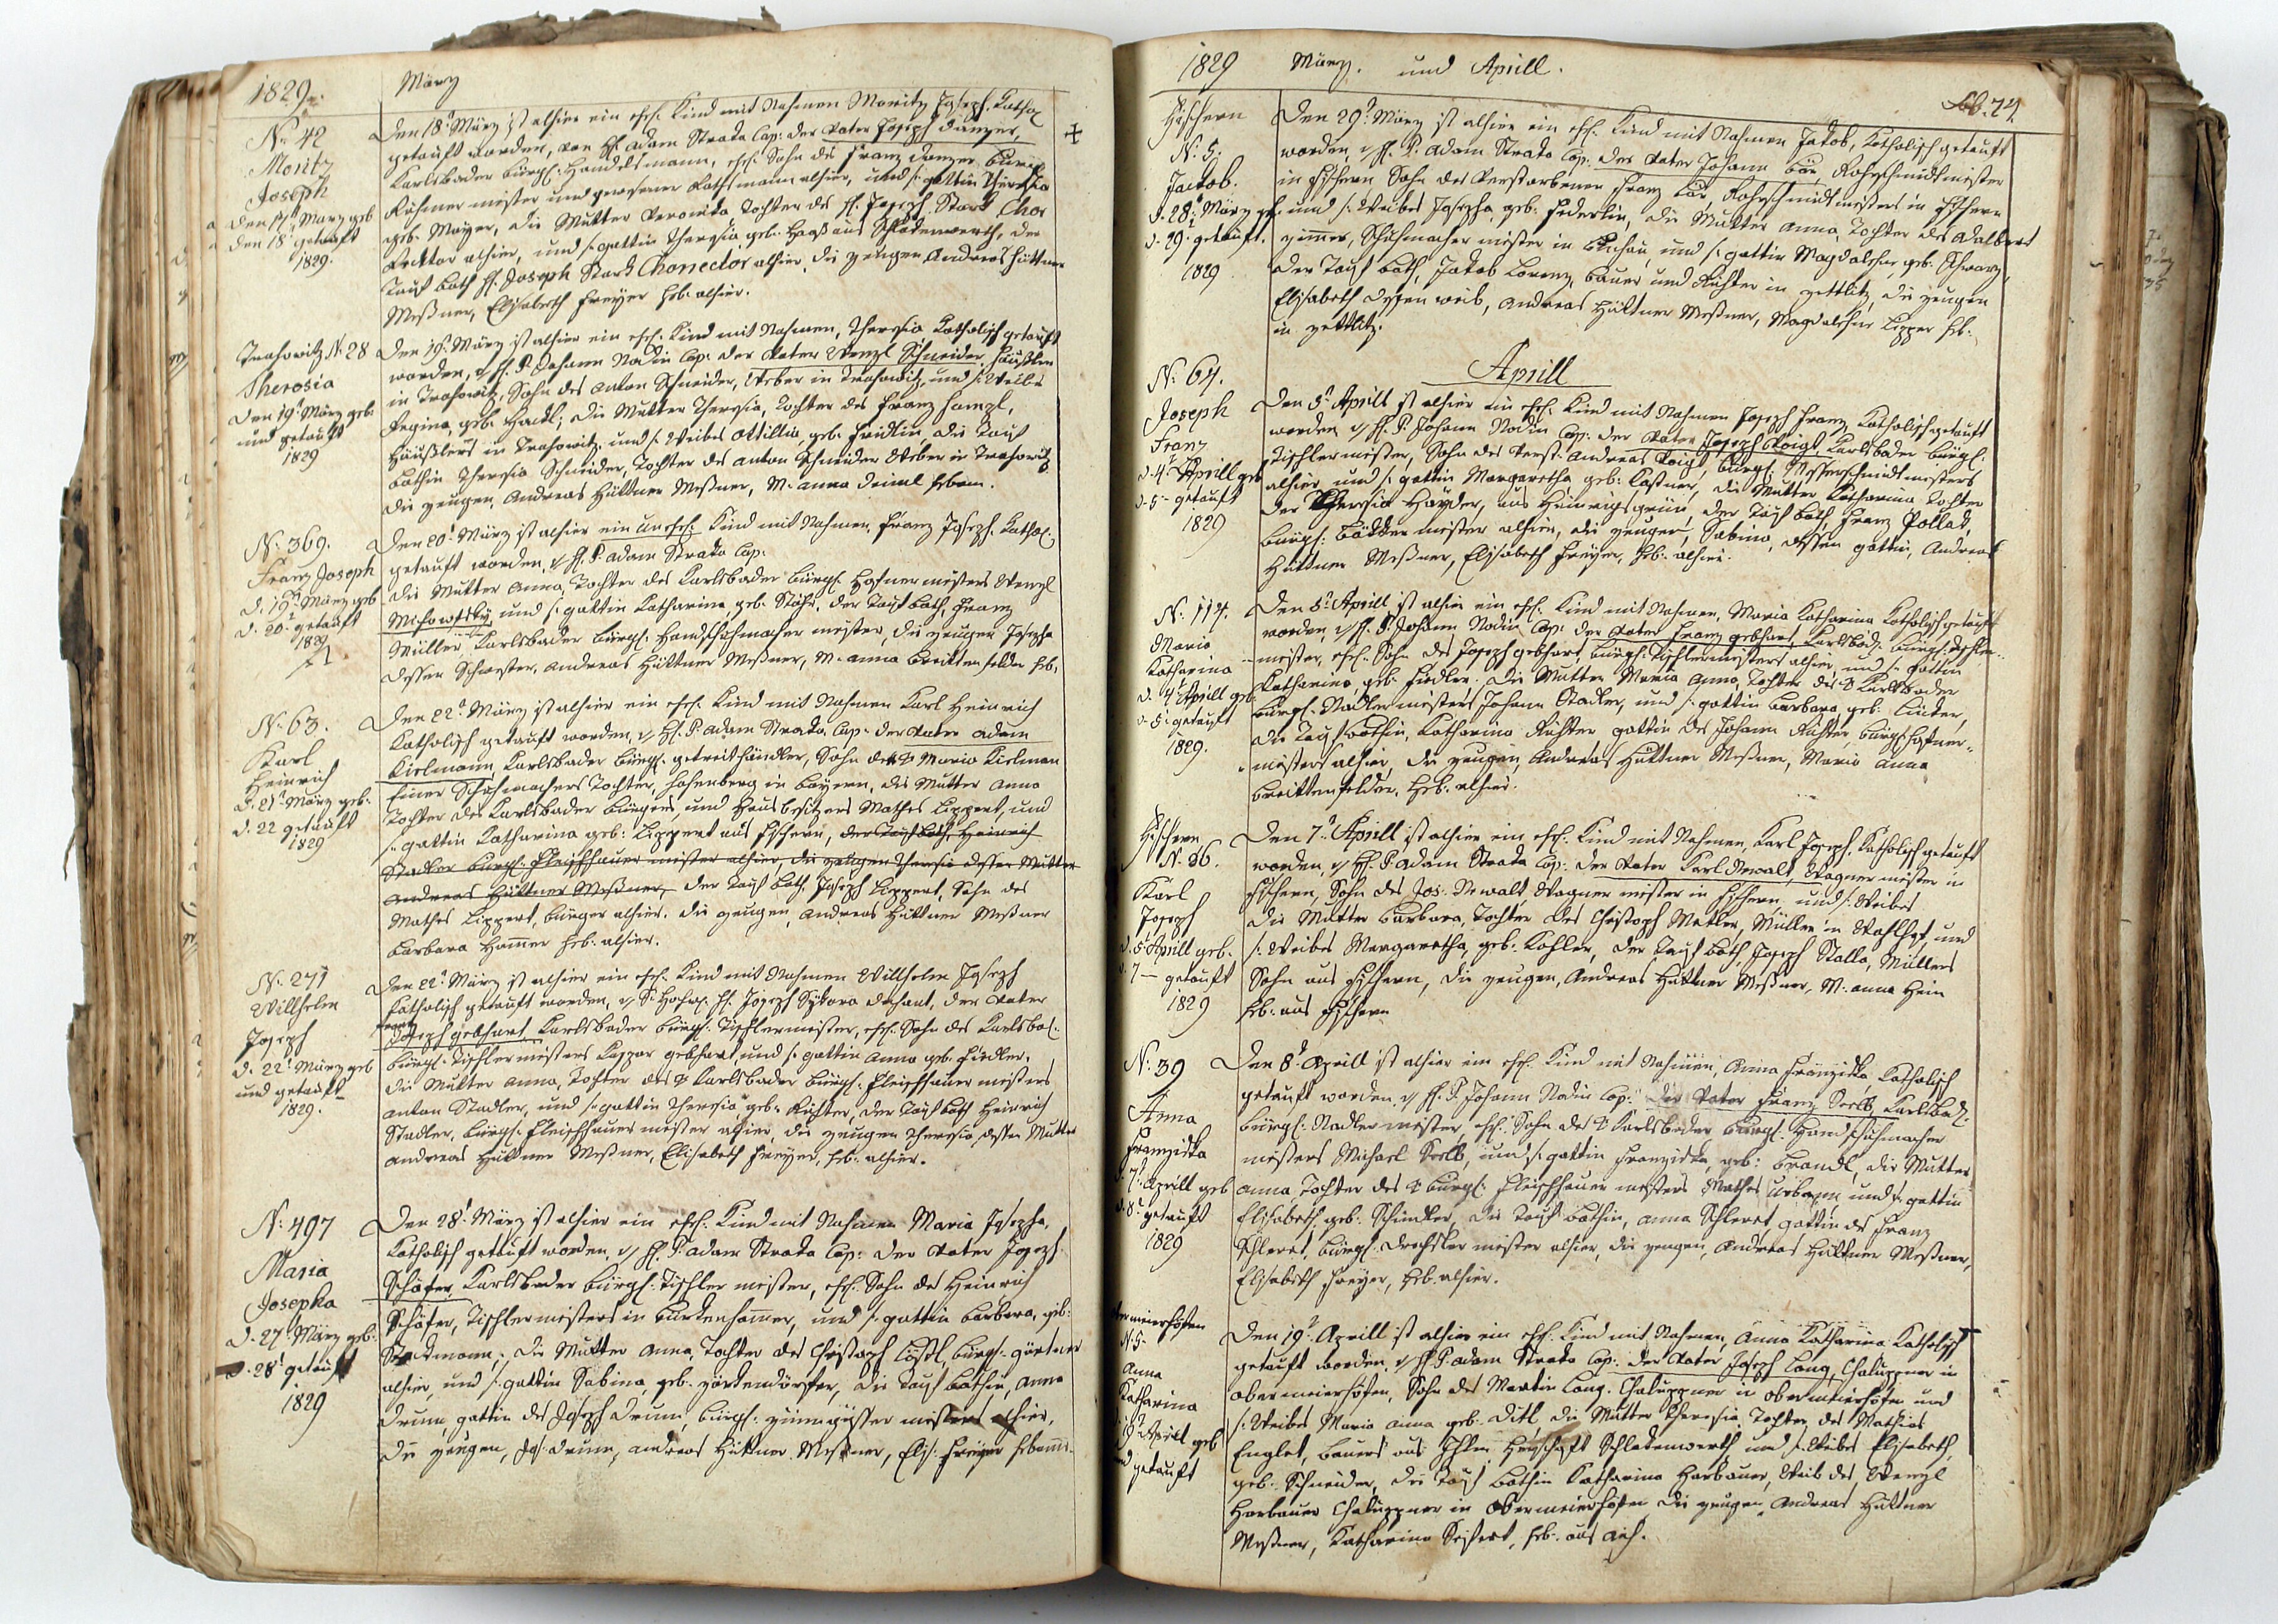 1829.
März
N: 42
Moritz
Joseph
den 17t März geb
den 18t getauft
1829.
Den 18t März ist alhier ein ehel. Kind mit Nahmen Moritz Joseph, Kathol
getauft worden, von H. Adam Strada Cap: der Vater Joseph Danzer,
Karlsbader bürgl: Handelsmann, ehel. Sohn des Franz Danzer, bürgl
meister und gewesener Rathsmann alhier, und s. gattin Theresia
geb. Mayer, die Mutter Veronika, Tochter des H. Joseph Stark Chor
Recktor alhier, und s. gattin Theresia geb. Haaß aus Schlakenwerth, der
Tauf Path H. Joseph Stark Chorrector alhier, die zeugen Andreas Hüttner
Meßner, Elisabeth Freyer heb. alhier.
Trahowitz N: 28
Theresia
den 19t März geb.
und getauft
1829
Den 19t März ist alhier ein ehel. Kind mit Nahmen, Theresia Katholisch getauft
worden, v H. P. Johann Nodin Cap: der Vater Wenzl Schneider, Häußler
in Trahowitz, Sohn des Anton Schneider, Weber in Trahowitz, und s. Weibes
Regina, geb. Hackl, die Mutter Theresia, Tochter des Franz Hampl,
Häußlers in Trahowitz, und s. Weibes Ottillia, geb. Fridlin, die Tauf
Pathin Theresia Schneider, Tochter des Anton Schneider Weber in Trahowitz
die zeugen, Andreas Hüttner Meßner, M. Anna Deiml hebam.
N: 369.
Franz Joseph
d. 19t März geb
d. 20t getauft
1829
Den 20t März ist alhier ein unehel. Kind mit Nahmen, Franz Joseph, Kathol.
getauft worden, v H. P. Adam Strada Cap.
die Mutter Anna, Tochter des Karlsbader bürgl. Hafnermeisters Wenzl
und s. gattin Katharina geb. Stöhr, der Tauf Path, Franz
Müller, Karlsbader bürgl. Handschuhmacher meister, die zeugen Josepha
dessen Schwester, Andreas Hüttner Meßner, M. Anna Breittenfelder heb.
N: 63.
Karl
Heinrich
d. 21t März geb.
d. 22 getauft
1829
Den 22t März ist alhier ein ehel. Kind mit Nahmen Karl Heinrich
Katholisch getauft worden, v H. P. Adam Strada, Cap. der Vater Adam
Kielmann, Karlsbader bürgl. getreithändler, Sohn der Maria Kielman
Einer Schuhmachers Tochter, Hohenberg in Bayern, die Mutter Anna
Tochter des Karlsbader bürgers, und Hausbesitzers Mathes Lippert, und
s. gattin Katharina geb: Lippert aus Fischern, der Tauf Path, Heinrich
Stadler bürgl. Fleischhauer meister alhier, die zeugen Theresia dessen Mutter
Andreas Hüttner Meßner, der Tauf Path, Joseph Lippert, Sohn des
Mathes Lippert, bürger alhier. die zeugen, Andreas Hüttner Meßner
Barbara Hamer heb. alhier.
N: 271
Willhelm
Joseph
d. 22t März geb
und getauft
1829.
Den 22t März ist alhier ein ehel. Kind mit Nahmen Willhelm Joseph
Katholisch getauft worden, v H. Joseph Sykora Dechant, der Vater
Joseph gebhart, Karlsbader bürgl. Tischlermeister, ehel. Sohn des Karlsbad.
bürgl. Tischlermeisters Kaspar gebhart und s. gattin Anna geb. Fiedler,
die Mutter Anna, Tochter des Karlsbader bürgl. Fleischhauermeisters
Anton Stadler, und s. gattin Theresia geb. Richter, der Tauf Path Heinrich
Stadler, bürgl. Fleischhauer meister alhier, die zeugen Theresia, dessen Mutter
Andreas Hüttner Meßner, Elisabeth Freyer, heb. alhier.
N: 497
Maria
Josepha
d. 27t März geb:
d. 28t getauft
1829
Den 28t März ist alhier ein ehel. Kind mit Nahmen Maria Josepha,
Katholisch getauft worden, v H. P. Adam Strada Cap: der Vater Joseph
Schäfer, Karlsbader bürgl. Tischler meister, ehel. Sohn des Heinrich
Schäfer, Tischlermeisters in und s. gattin Barbara, geb:
die Mutter Anna, Tochter des Christoph Lößl, bürgl. gärtner
alhier, und s. gattin Sabina, geb. die Tauf Pathin, Anna
Drum, gattin des Joseph Drum bürgl. zinngießer meisters alhier,
die zeugen, Jos. Drum, Andreas Hüttner Meßner, Elis. Freyer
1829 März. und Aprill.
Fol. 74
Fischern
N: 5.
Jackob.
d. 28t März geb.
d. 29. getauft.
1829
Den 29t März ist alhier ein ehel. Kind mit Nahmen Jakob, Katholisch getauft
worden, v H. P. Adam Strada Cap. der Vater Johann Bär, Rohrschmidtmeister
in Fischern Sohn des Verstorbenen Franz Bär, Rohrschmidtmeisters in Fischern
und s. Weibes Josepha, geb. Federlin, die Mutter Anna, Tochter des Adalbert
Schuhmacher meister in Buchau, und s. gattin Magdalena, geb. Schwarz,
der Tauf Path, Jakob Lorenz, Bauer und Richter in zettlitz, die zeugen
Elisabeth dessen weib, Andreas Hüttner Meßner, Magdalena Lipper heb.
in zettlitz.
Aprill
N: 64.
Joseph
Franz
d. 4t Aprill geb
d. 5 getauft
1829
Den 5t Aprill ist alhier ein ehel. Kind mit Nahmen Joseph Franz, Katholisch getauft
worden, v H. P. Johann Nodin Cap. der Vater Joseph Voigt, Karlsbader bürgl.
Tischlermeister, Sohn des Verst. Andreas Voigt, bürgl. Messerschmidtmeisters
alhier, und s. gattin Margaretha geb: Laßner, die Mutter Katharina Tochter
der Theresia Hayder, aus Heinrigsgrün, der Tauf Path, Franz Pollak,
bürgl: Bäkkermeister alhier, die zeugen, Sabina, dessen gattin, Andreas
Hüttner Meßner, Elisabeth Freyer, heb. alhier.
N: 114.
Maria
Katharina
d. 4t Aprill geb.
d. 5t getauft
1829.
Den 5t Aprill ist alhier ein ehel. Kind mit Nahmen, Maria Katharina Katholisch getauft
worden, v H. P. Johann Nodin, Cap: der Vater Franz gebhart, Karlsbad. bürgl. Tischler
meister, ehel. Sohn des Joseph gebhart, bürgl. Tischlermeisters alhier, und s. gattin
Katharina, geb. Fiedler. die Mutter Maria Anna, Tochter des Karlsbader
bürgl. Nadlermeisters Johann Stadler, und s. gattin Barbara, geb:
die Taufpathin, Katharina Richter gattin des Johann Richter, bürgl. Hafner
meisters alhier, die zeugen, Andreas Hüttner Meßner, Maria Anna
Breittenfelder, heb. alhier.
Fischern
N. 36.
Karl
Joseph
d. 5 Aprill geb.
d. 7 getauft
1829
Den 7t Aprill ist alhier ein ehel. Kind mit Nahmen, Karl Joseph, Katholisch getauft
worden, v H. P. Adam Strada Cap. der Vater Karl Ewalt, Wagnermeister in
Fischern, Sohn des Jos. Ewalt, Wagner meister in Fischern, und s. Weibes
die Mutter Barbara, Tochter des Christoph Müller in und
s. Weibes Margaretha, geb. Kohler, der Tauf Path, Joseph Stalla, Müllers
Sohn aus Fischern, die zeugen, Andreas Hüttner Meßner, M. Anna Hein
heb. aus Fischern
N. 39
Anna
Franziska
d. 7t Aprill geb
d. 8t getauft
1829
Den 8t Aprill ist alhier ein ehel. Kind mit Nahmen, Anna Franziska, Katholisch
getauft worden, v H. P. Johann Nodin Cap: der Vater Franz Seelb, Karlsbad.
bürgl. Nadlermeister, ehel. Sohn des Karlsbader bürgl. Handschuhmacher
meisters Michael Seelb, und s. gattin Franziska, geb: Brandl, die Mutter
Anna, Tochter des bürgl. Fleischhauer meisters Mathes Urbann, und s. gattin
Elisabeth, geb. Schindler, die Tauf Pathin, Anna Schleret, gattin des Franz
Schleret, bürgl. Drechsler meister alhier, die zeugen, Andreas Hüttner Meßner,
Elisabeth Freyer, heb. alhier.
N: 5.
Anna
Katharina
19t Aprill geb
getauft
Den 19t Aprill ist alhier ein ehel. Kind mit Nahmen, Anna Katharina Katholisch
getauft worden, v H. P. Adam Strada Cap: der Vater Joseph Lang, Chaluppner in
Obermeierhöfen, Sohn des Martin Lang, Chaluppner in Obermeierhöfen und
s. Weibes Maria Anna geb. Ditl, die Mutter Theresia, Tochter des Mathias
Englet, Bauers aus Herschaft Schlakenwerth und s. Weibes Elisabeth,
geb. Schneider, die Tauf Pathin Katharina Harbauer, Weib des Wenzl
Harbauer Chaluppner in Obermeierhöfen die zeugen, Andreas Hüttner
Meßner, Katharina Seifert, heb. aus Aich.